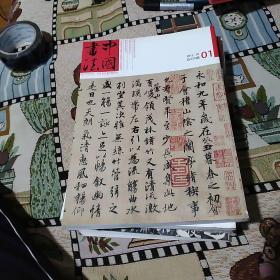 中國書法
01
永和九年歲在癸丑暮春之初會
于會稽山陰之蘭亭脩稧事
也羣賢畢至少長咸集此地
有崇山峻領茂林脩竹又有清流激
湍暎帶左右引以為流觴曲水
列坐其次雖無絲竹管弦之
盛一觴一詠亦足以暢叙幽情
是日也天朗氣清惠風和暢仰